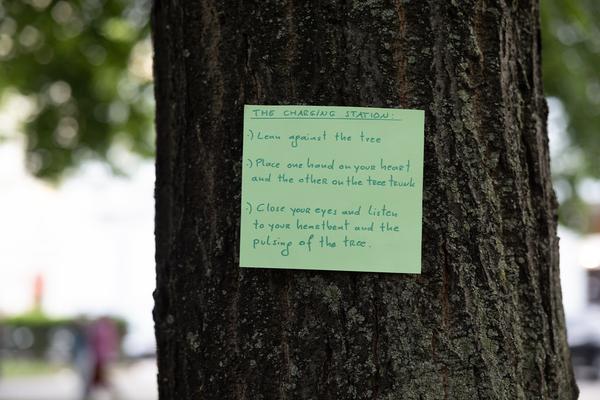 THE CHARGING STATION:
·) Lean against the tree
·) Place one hand on your heart
and the other on the tree trunk
·) Close your eyes and listen
to your heartbeat and the
pulsing of the tree.